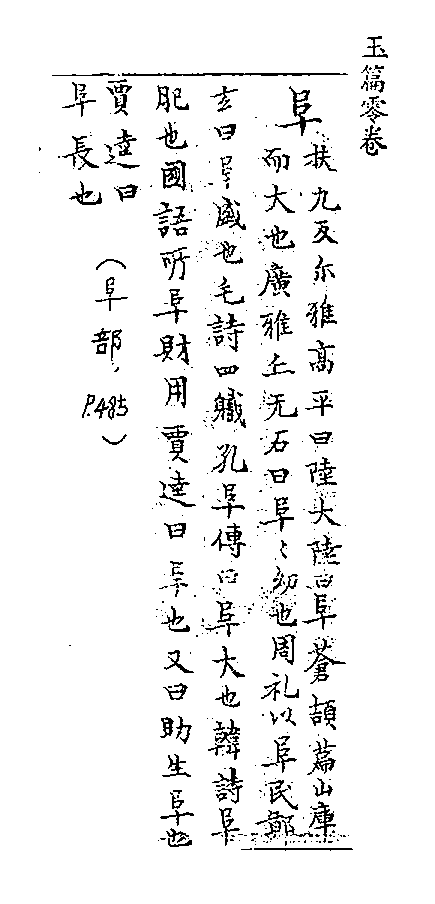 玉篇零卷
阜
扶九反尒雅髙平曰陸大陸曰阜蒼頡篇山庳
而大也廣雅土无石曰阜〻也周礼以阜民鄭
玄曰阜盛也毛詩四驖孔阜傳曰阜大也韓詩阜
肥也國語所阜財用賈逵曰阜也又曰助生阜也
賈逵曰
阜長也
（阜部，P.485）